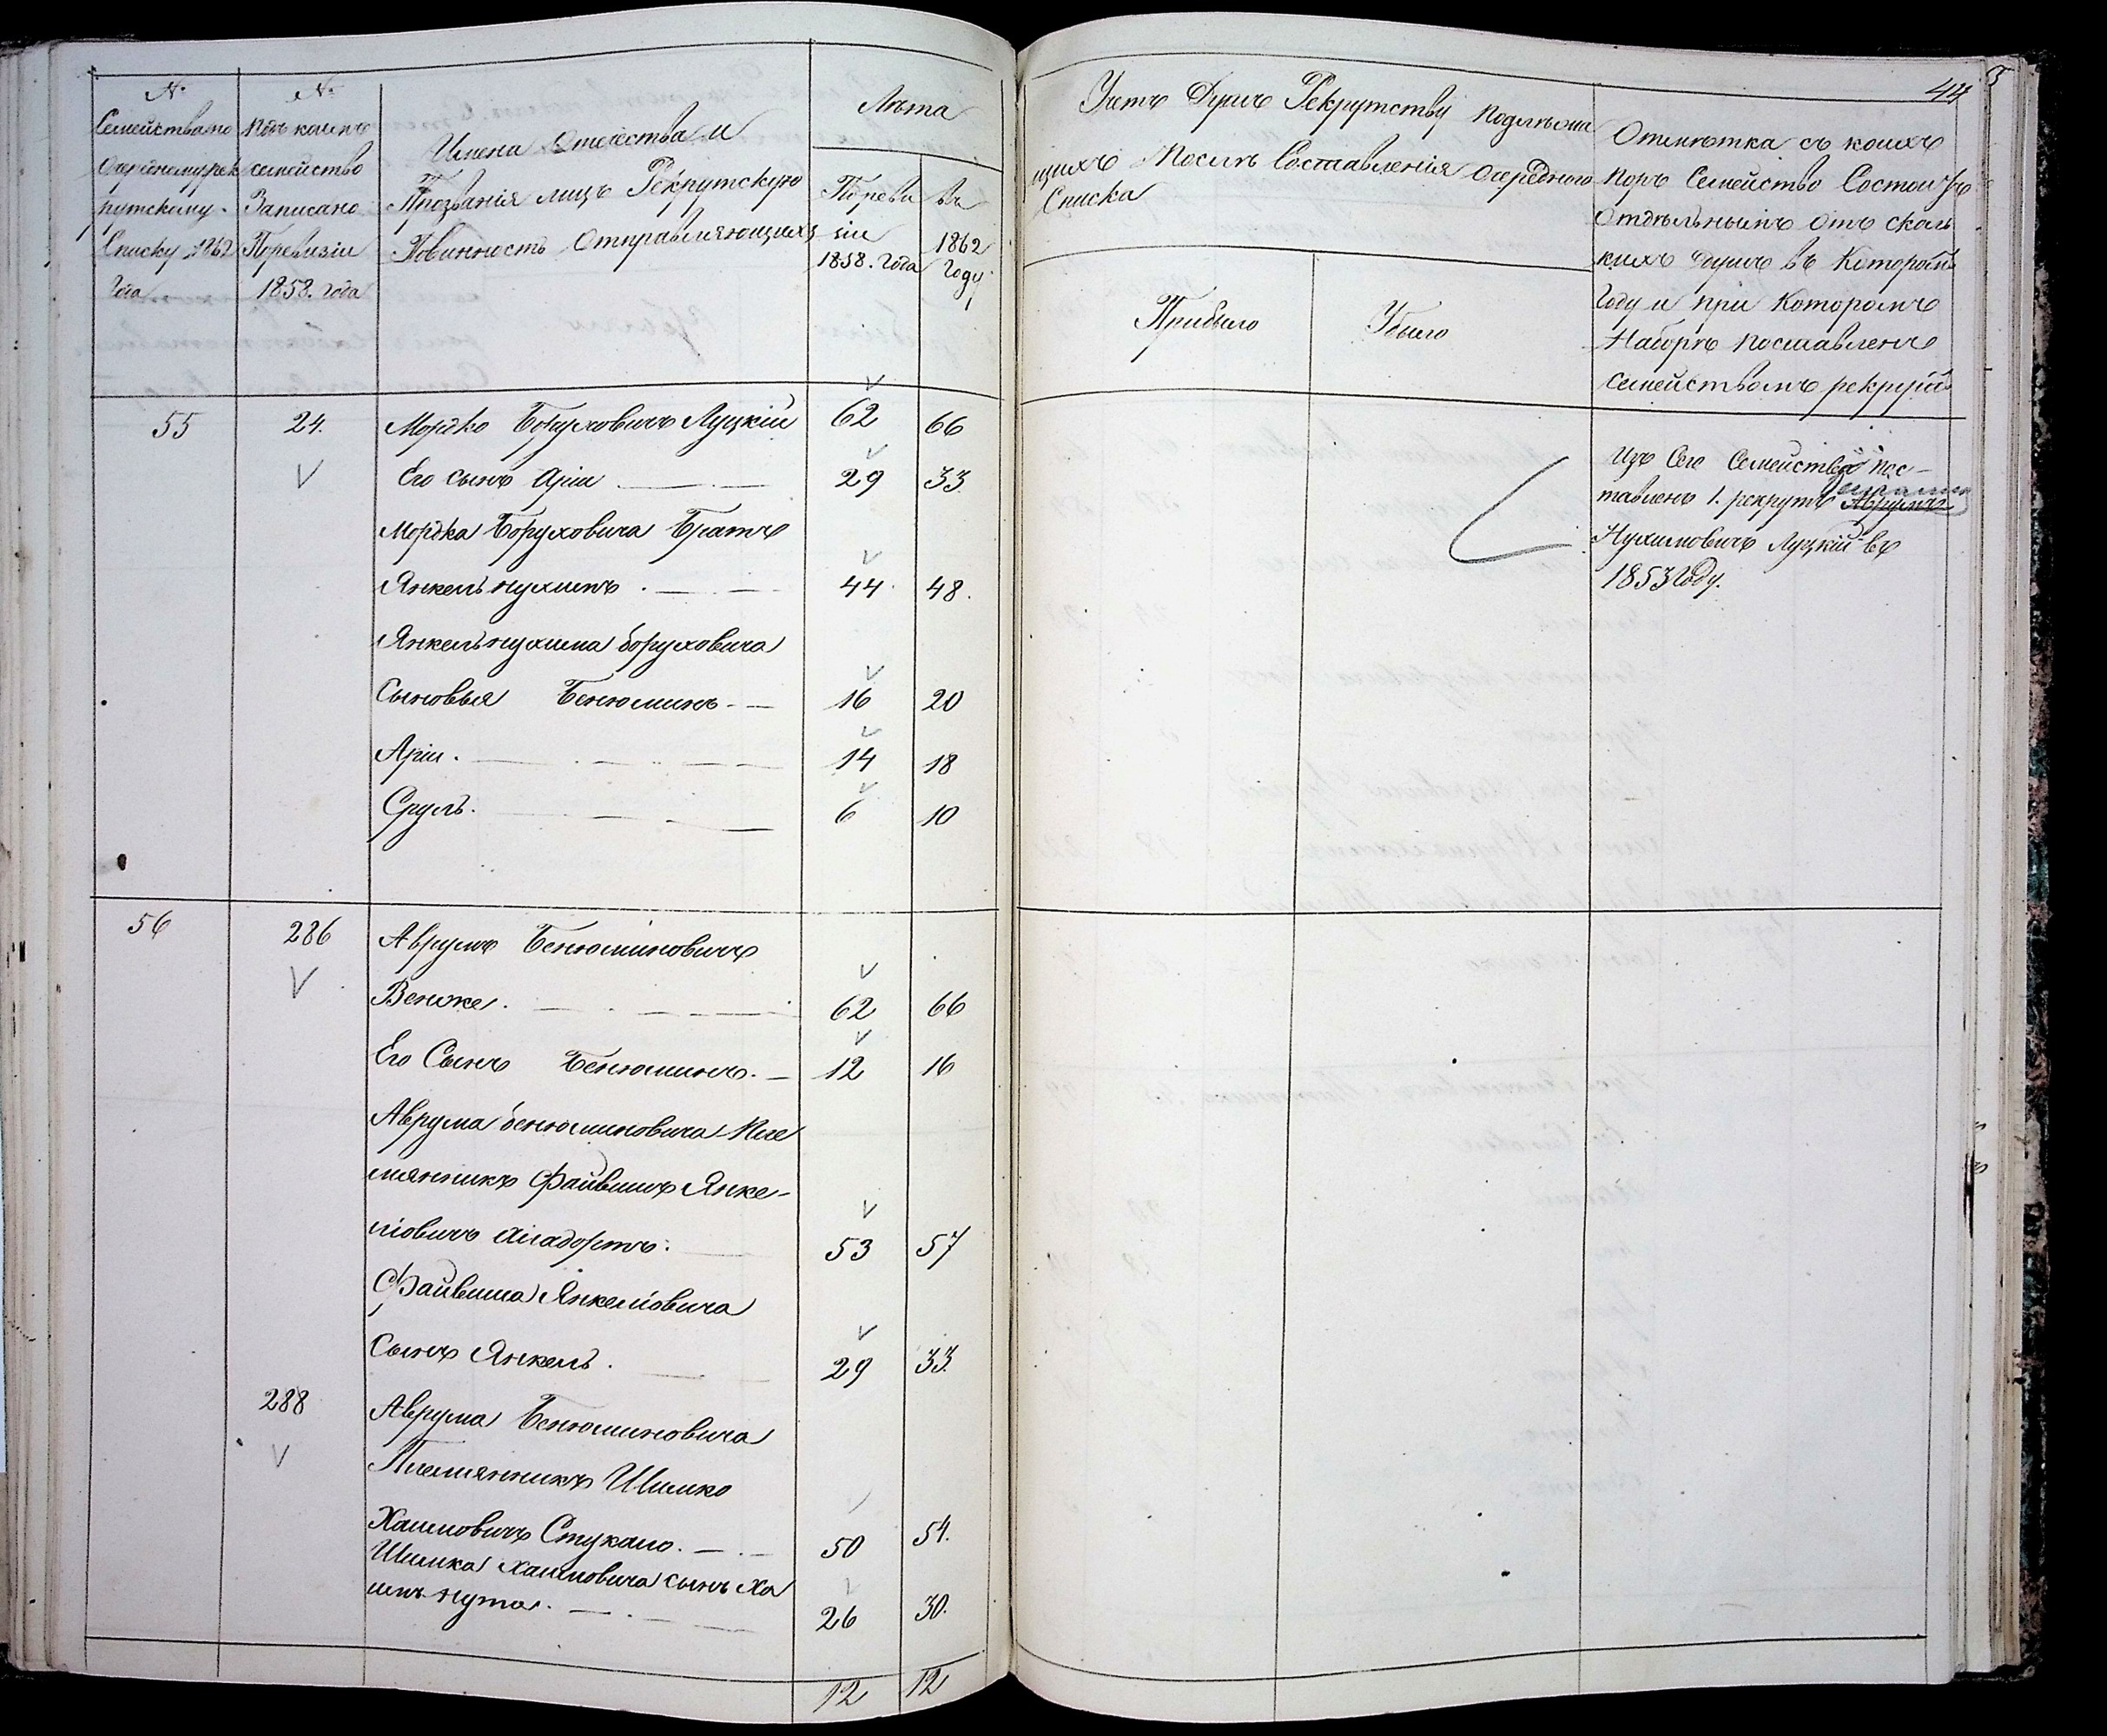 №
Семейства по
Очередному рек
рутскому
Списку 1862
Года
№
Подъ коимъ
семейство
Записано
По ревизіи
1858. года
Имена Отчества и
Прозванія лицъ Рекрутскую
Повинность Отправляющихъ
Лѣта
По реви
зіи
1858. Года
въ
1862
Году
55
24.
Мордко Боруховичъ Луцкій
62
66
Его сынъ Арія
29
33
Мордка Боруховича Братъ
Янкель нухимъ
44
48.
Янкель нухима боруховича
Сыновья Бенюминъ
16
20
Арія.
14
18
Сруль.
6
10
56
286
Аврумъ Бенюминовичъ
Венже.
62
66
Его Сынъ Бенюминъ.
12
16
Аврума бенюминовича Пле
мянникъ Файвишъ Янке-
ліовичъ
53
57
Файвиша Янкеліовича
Сынъ Янкель.
29
33.
288
Аврума Бенюминовича
Племянникъ Шимко
Хаимовичъ Стукало.
50
54.
Шимка Хаимовича сынъ Ха
имъ нута.
26
30.
12
12
44
Учетъ Душъ Рекрутству подлежа
щихъ Послѣ Составленія Очереднаго
Списка
Прибыло
Убыло
Отмѣтка съ коихъ
поръ Семейство Состоитъ
Отдѣльнымъ Отъ сколь
кихъ душъ въ Которомъ
Году и при Которомъ
Наборѣ поставленъ
семействомъ рекрутъ
Изъ Сего Семейства пос-
тавленъ 1. рекрутъ Аврумъ
Нухимовичъ Луцкій въ
1853 Году.